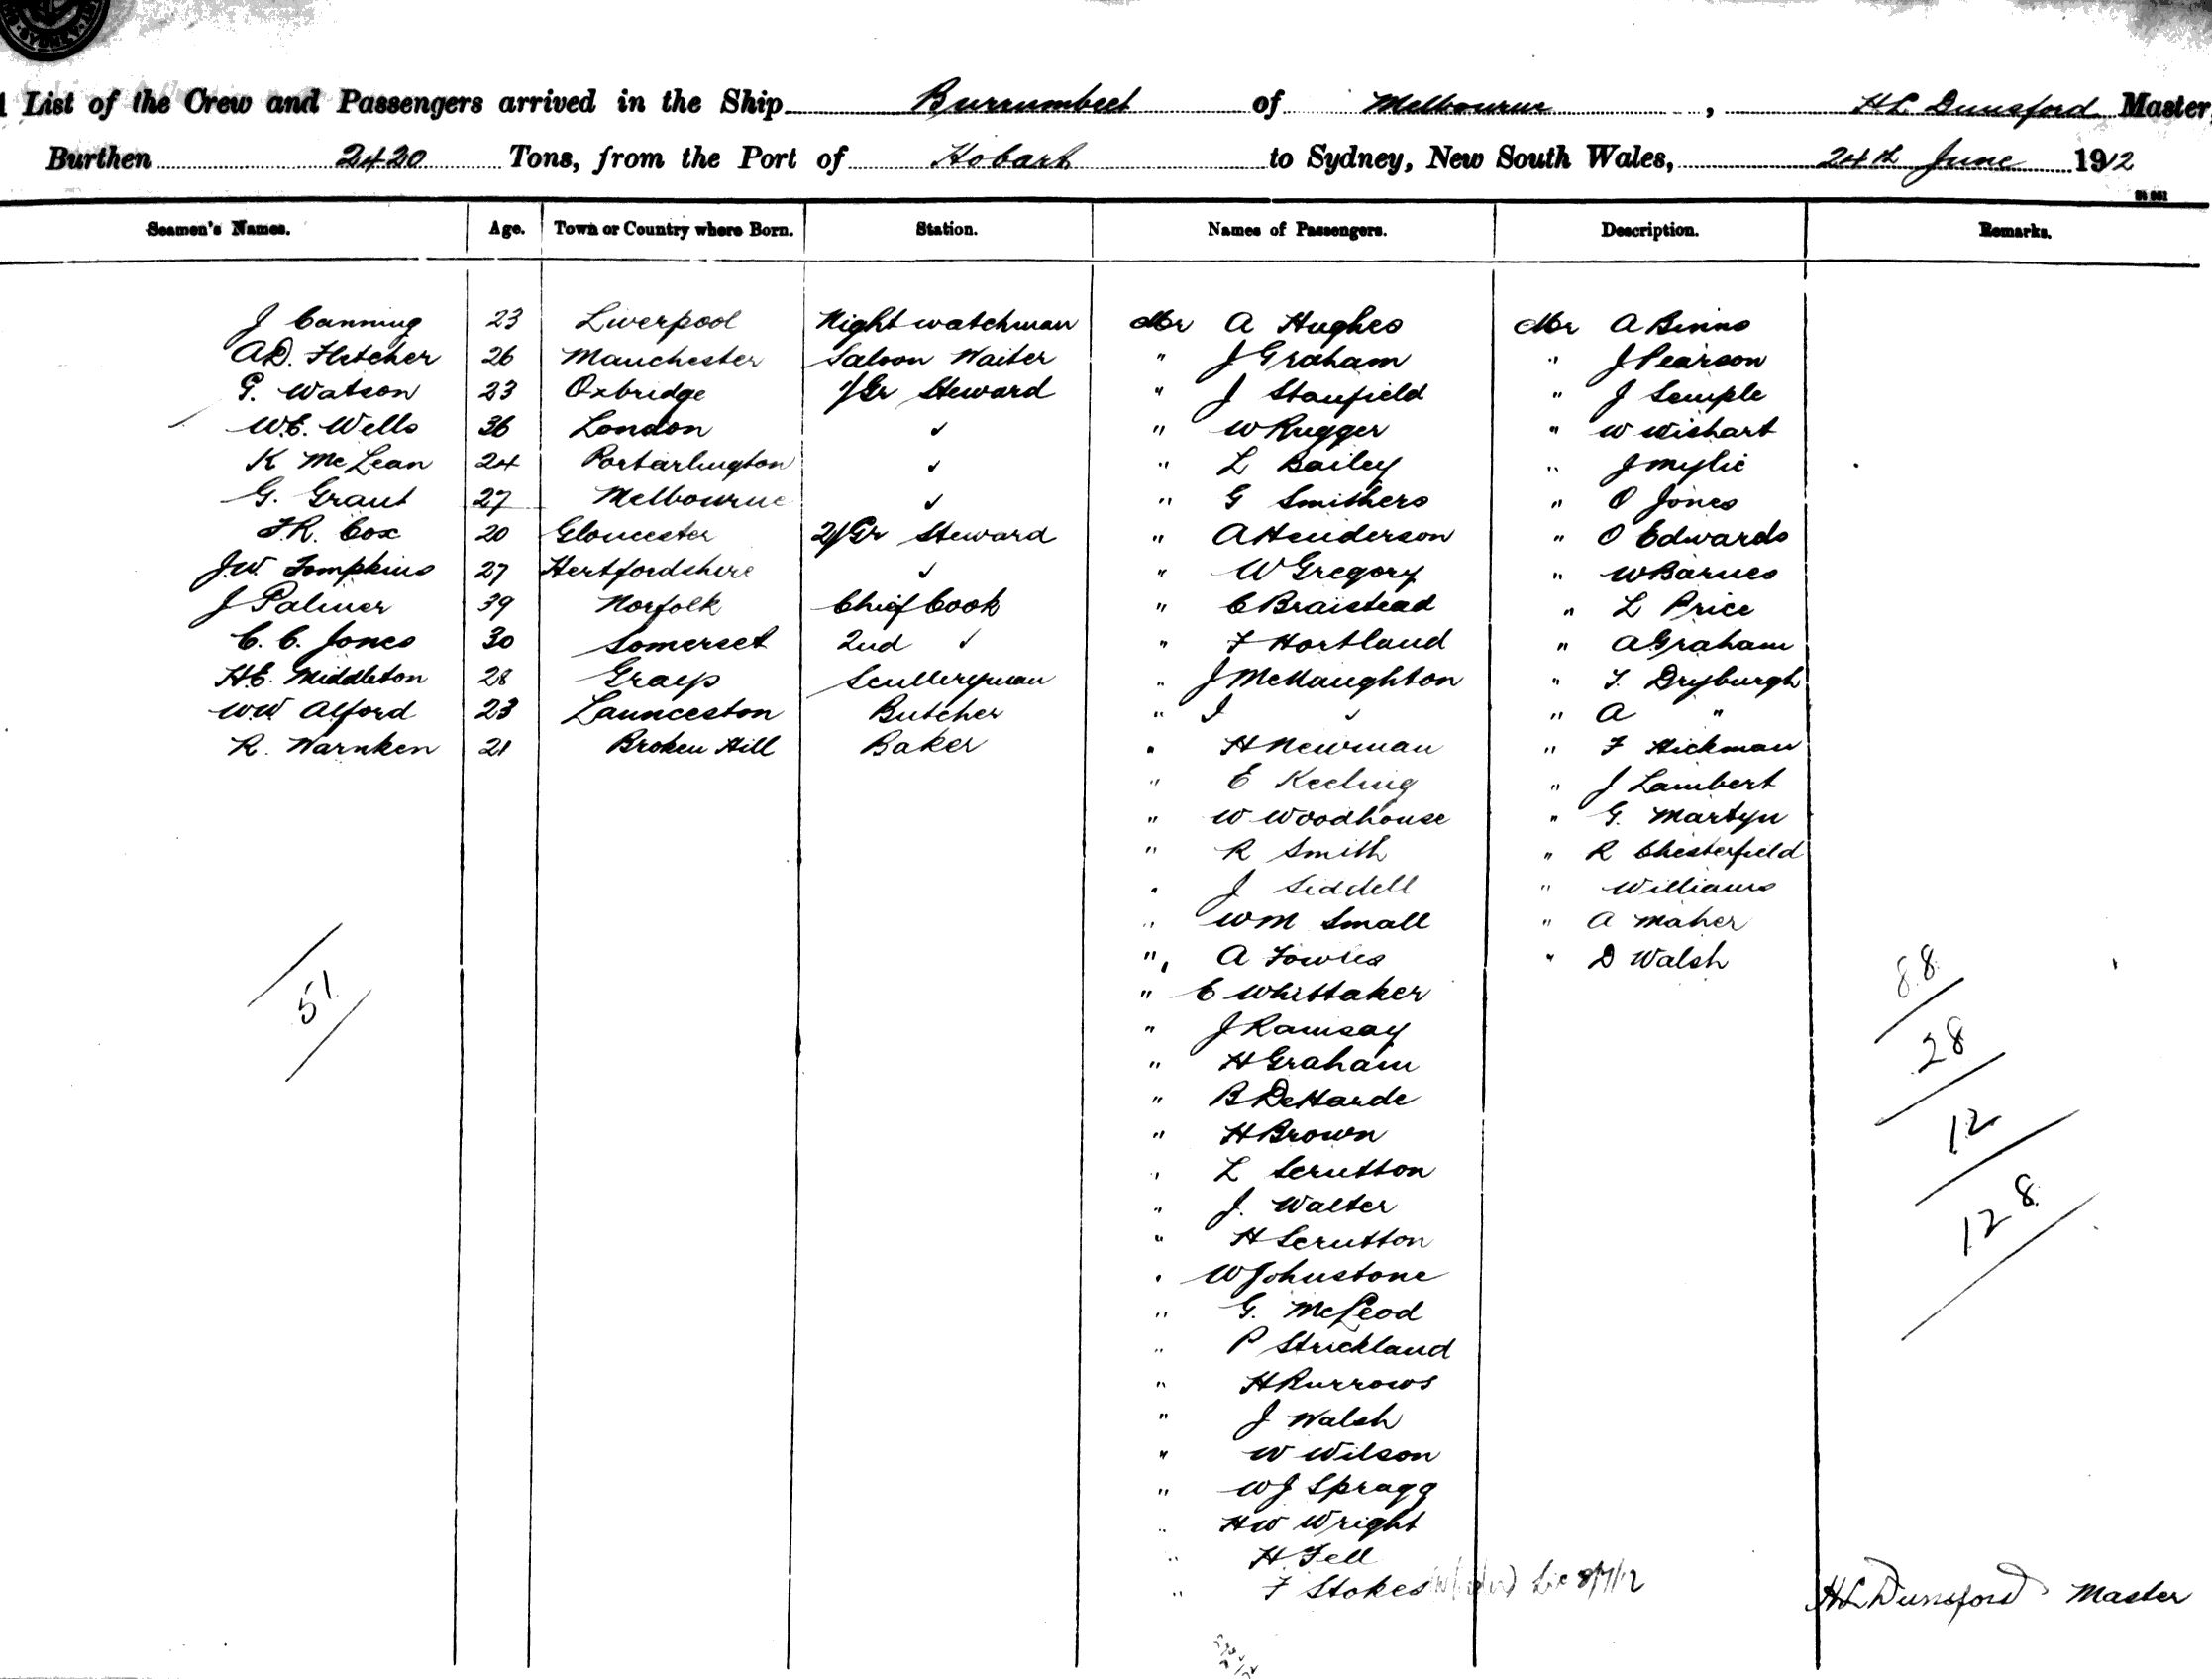 List of the Crew and Passengers arrived in the Ship Burrumbeet of Melbourne, H L Dunsford Master,
Burthen 2420 Tons, from the Port of Hobart to Sydney, New South Wales, 24th June 1912
Seamen's Names. Age. Town or Country where Born. Station. Names of Passengers. Description. Remarks.
J Canning 23 Liverpool Night watchman Mr A Hughes Mr A Binns
A.D. Fletcher 26 Manchester Saloon Waiter " J Graham " J Pearson
G. Watson 23 Oxbridge 1/Gr Steward " J Stanfield " J Semple
W.E. Wells 36 London ✓ " W Rugger " W Wishart
K McLean 24 Portarlington ✓ " L Bailey " J Mylie
G. Grant 27 Melbourne ✓ " G Smithers " O Jones
F.R. Cox 20 Gloucester 2/Gr Steward " A Henderson " O Edwards
J.W. Tompkins 27 Hertfordshire ✓ " W Gregory " W Barnes
J Palmer 39 Norfolk Chief Cook " C Braistead " L Price
C. C. Jones 30 Somerset 2nd ✓ " F Hortland " A Graham
H.E. Middleton 28 Grays Sculleryman " J McNaughton " T. Dryburgh
W.W. Alford 23 Launceston Butcher " I ✓ " A "
R. Warnken 21 Broken Hill Baker " H Newman " F Hickman
" E Keeling " J Lambert
" W Woodhouse " G. Martyn
" R Smith " R Chesterfield
" J Siddell " Williams
" W M Small " A Maher
" A Fowles " D Walsh
" C Whittaker
51
88
" J Ramsay
28
" H Graham
" B DeHarde
" H Brown
12
" L Scrutton
" J. Walter
128
" H Scrutton
" W Johnstone
" G. McLeod
" P Strickland
" H Burrows
" J Walsh
" W Wilson
" W J Spragg
" H W Wright
" H. Fell
" F Stokes 8/7/12
H L Dunsford Master